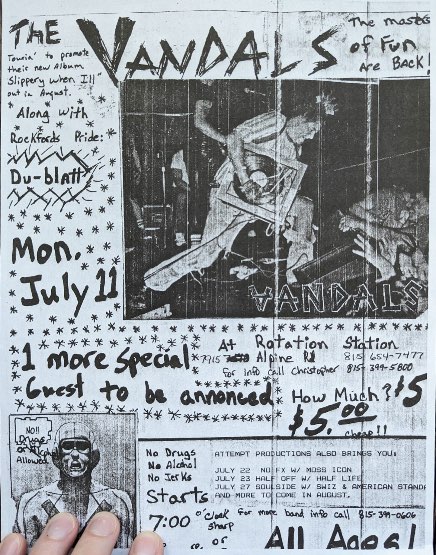 THE VANDALS
The masters
of Fun
Are BACK!
Tourin' to promote
their new Album
"Slippery when Ill"
out in August.
Along with
Rockfords Pride:
Du-blatt
Mon.
July 11
VANDALS
1 more special
Guest to be annonced
At Rotation Station
7715 Alpine Rd 815-654-7477
for info call christopher 815-399-5800
How Much? $5
$5.00
cheap!!
No!!
Drugs
or Alcohol
Allowed
No Drugs
No Alcohol
No Jerks
Starts
7:00 o'clock
sharp
or
ATTEMPT PRODUCTIONS ALSO BRINGS YOU:
JULY 22 NO FX W/ MOSS ICON
JULY 23 HALF OFF W/ HALF LIFE
JULY 27 SOULSIDE W/ SWIZ & AMERICAN STANDA
AND MORE TO COME IN AUGUST.
For more band info call 815-399-0606
All Ages!